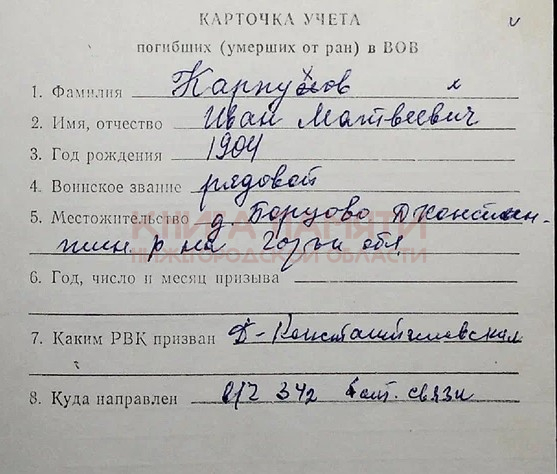 КАРТОЧКА УЧЕТА
погибших (умерших от ран) в ВОВ
1. Фамилия Карпухов
2. Имя, отчество Иван Матвеевич
3. Год рождения 1904
4. Воинское звание рядовой
5. Местожительство д. Борцово Д Константин-
р на обл
КНИГА ПАМЯТИ
НИЖЕГОРОДСКОЙ ОБЛАСТИ
6. Год, число и месяц призыва
7. Каким РВК призван Д-Константиновским
8. Куда направлен 342 бат. связи